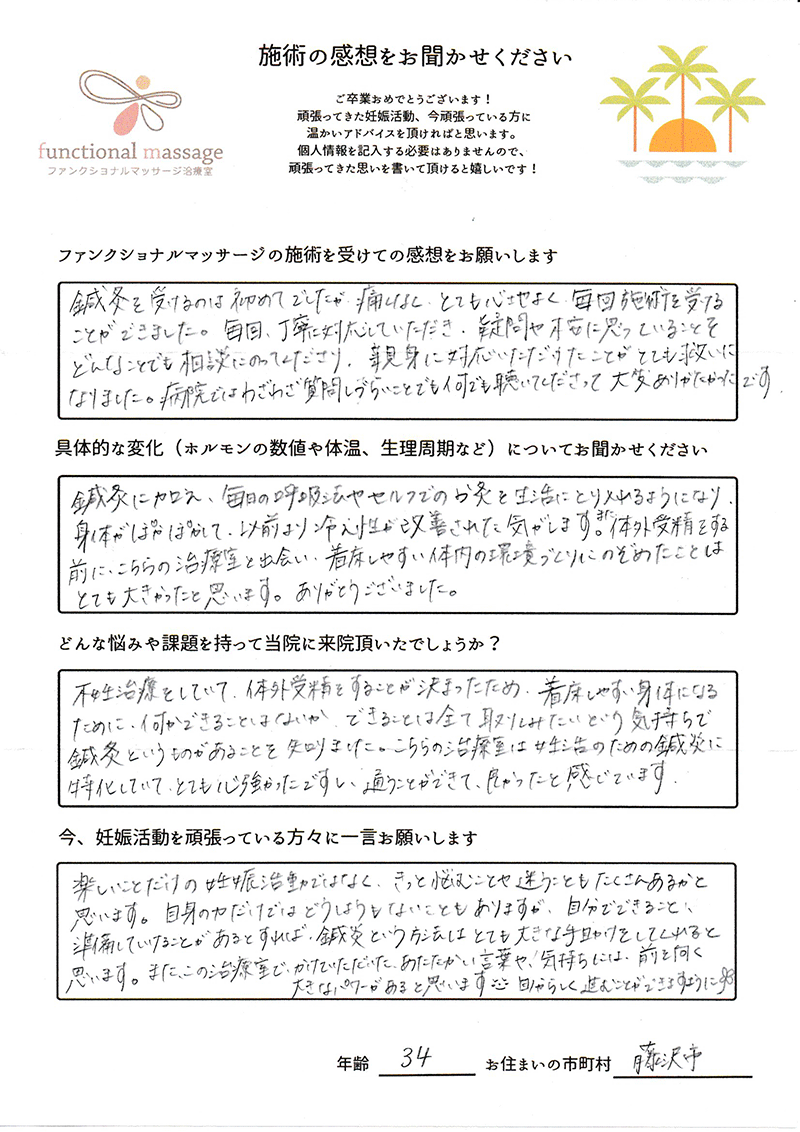 施術の感想をお聞かせください
ご卒業おめでとうございます！
頑張ってきた妊娠活動、今頑張っている方に
温かいアドバイスを頂ければと思います。
個人情報を記入する必要はありませんので、
頑張ってきた思いを書いて頂けると嬉しいです！
functional massage
ファンクショナルマッサージ治療室
ファンクショナルマッサージの施術を受けての感想をお願いします
鍼灸を受けるのは初めてでしたが、痛くなく、とても心地よく、毎回施術を受ける
ことができました。毎回、丁寧に対応していただき、疑問や不安に思っていることを
どんなことでも相談にのってくださり、親身に対応いただけたことがとても救いに
なりました。病院ではわざわざ質問しづらいことでも何でも聴いてくださって大変ありがたかったです
具体的な変化（ホルモンの数値や体温、生理周期など）についてお聞かせください
鍼灸に加え、毎日の呼吸法やセルフでのお灸を生活にとり入れるようになり、
身体がぽかぽかして、以前より冷え性が改善された気がします。また体外受精をする
前に、こちらの治療室と出会い、着床しやすい体内の環境づくりにのぞめたことは
とても大きかったと思います。ありがとうございました。
どんな悩みや課題を持って当院に来院頂いたでしょうか？
不妊治療をしていて、体外受精をすることが決まったため、着床しやすい身体になる
ために、何かできることはないか、できることは全て取り組みたいという気持ちで
鍼灸というものがあることを知りました。こちらの治療室は妊活のための鍼灸に
特化していて、とても心強かったですし、通うことができて、良かったと感じています。
今、妊娠活動を頑張っている方々に一言お願いします
楽しいことだけの妊娠活動ではなく、きっと悩むことや迷うこともたくさんあるかと
思います。自身の力だけではどうしようもないこともありますが、自分でできること、
準備していけることがあるとすれば、鍼灸という方法はとても大きな手助けをしてくれると
思います。また、この治療室で、かけていただいた、あたたかい言葉や、気持ちには、前を向く
大きなパワーがあると思います 自分らしく進むことができますように
年齢 34 お住まいの市町村 藤沢市